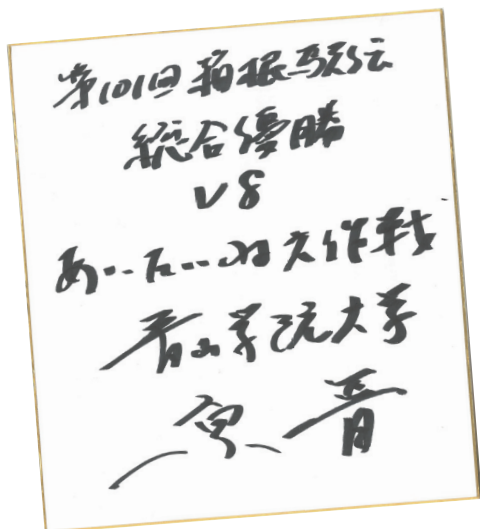 第101回箱根駅伝
総合優勝
V8
あいたいね大作戦
青山学院大学
原 晋